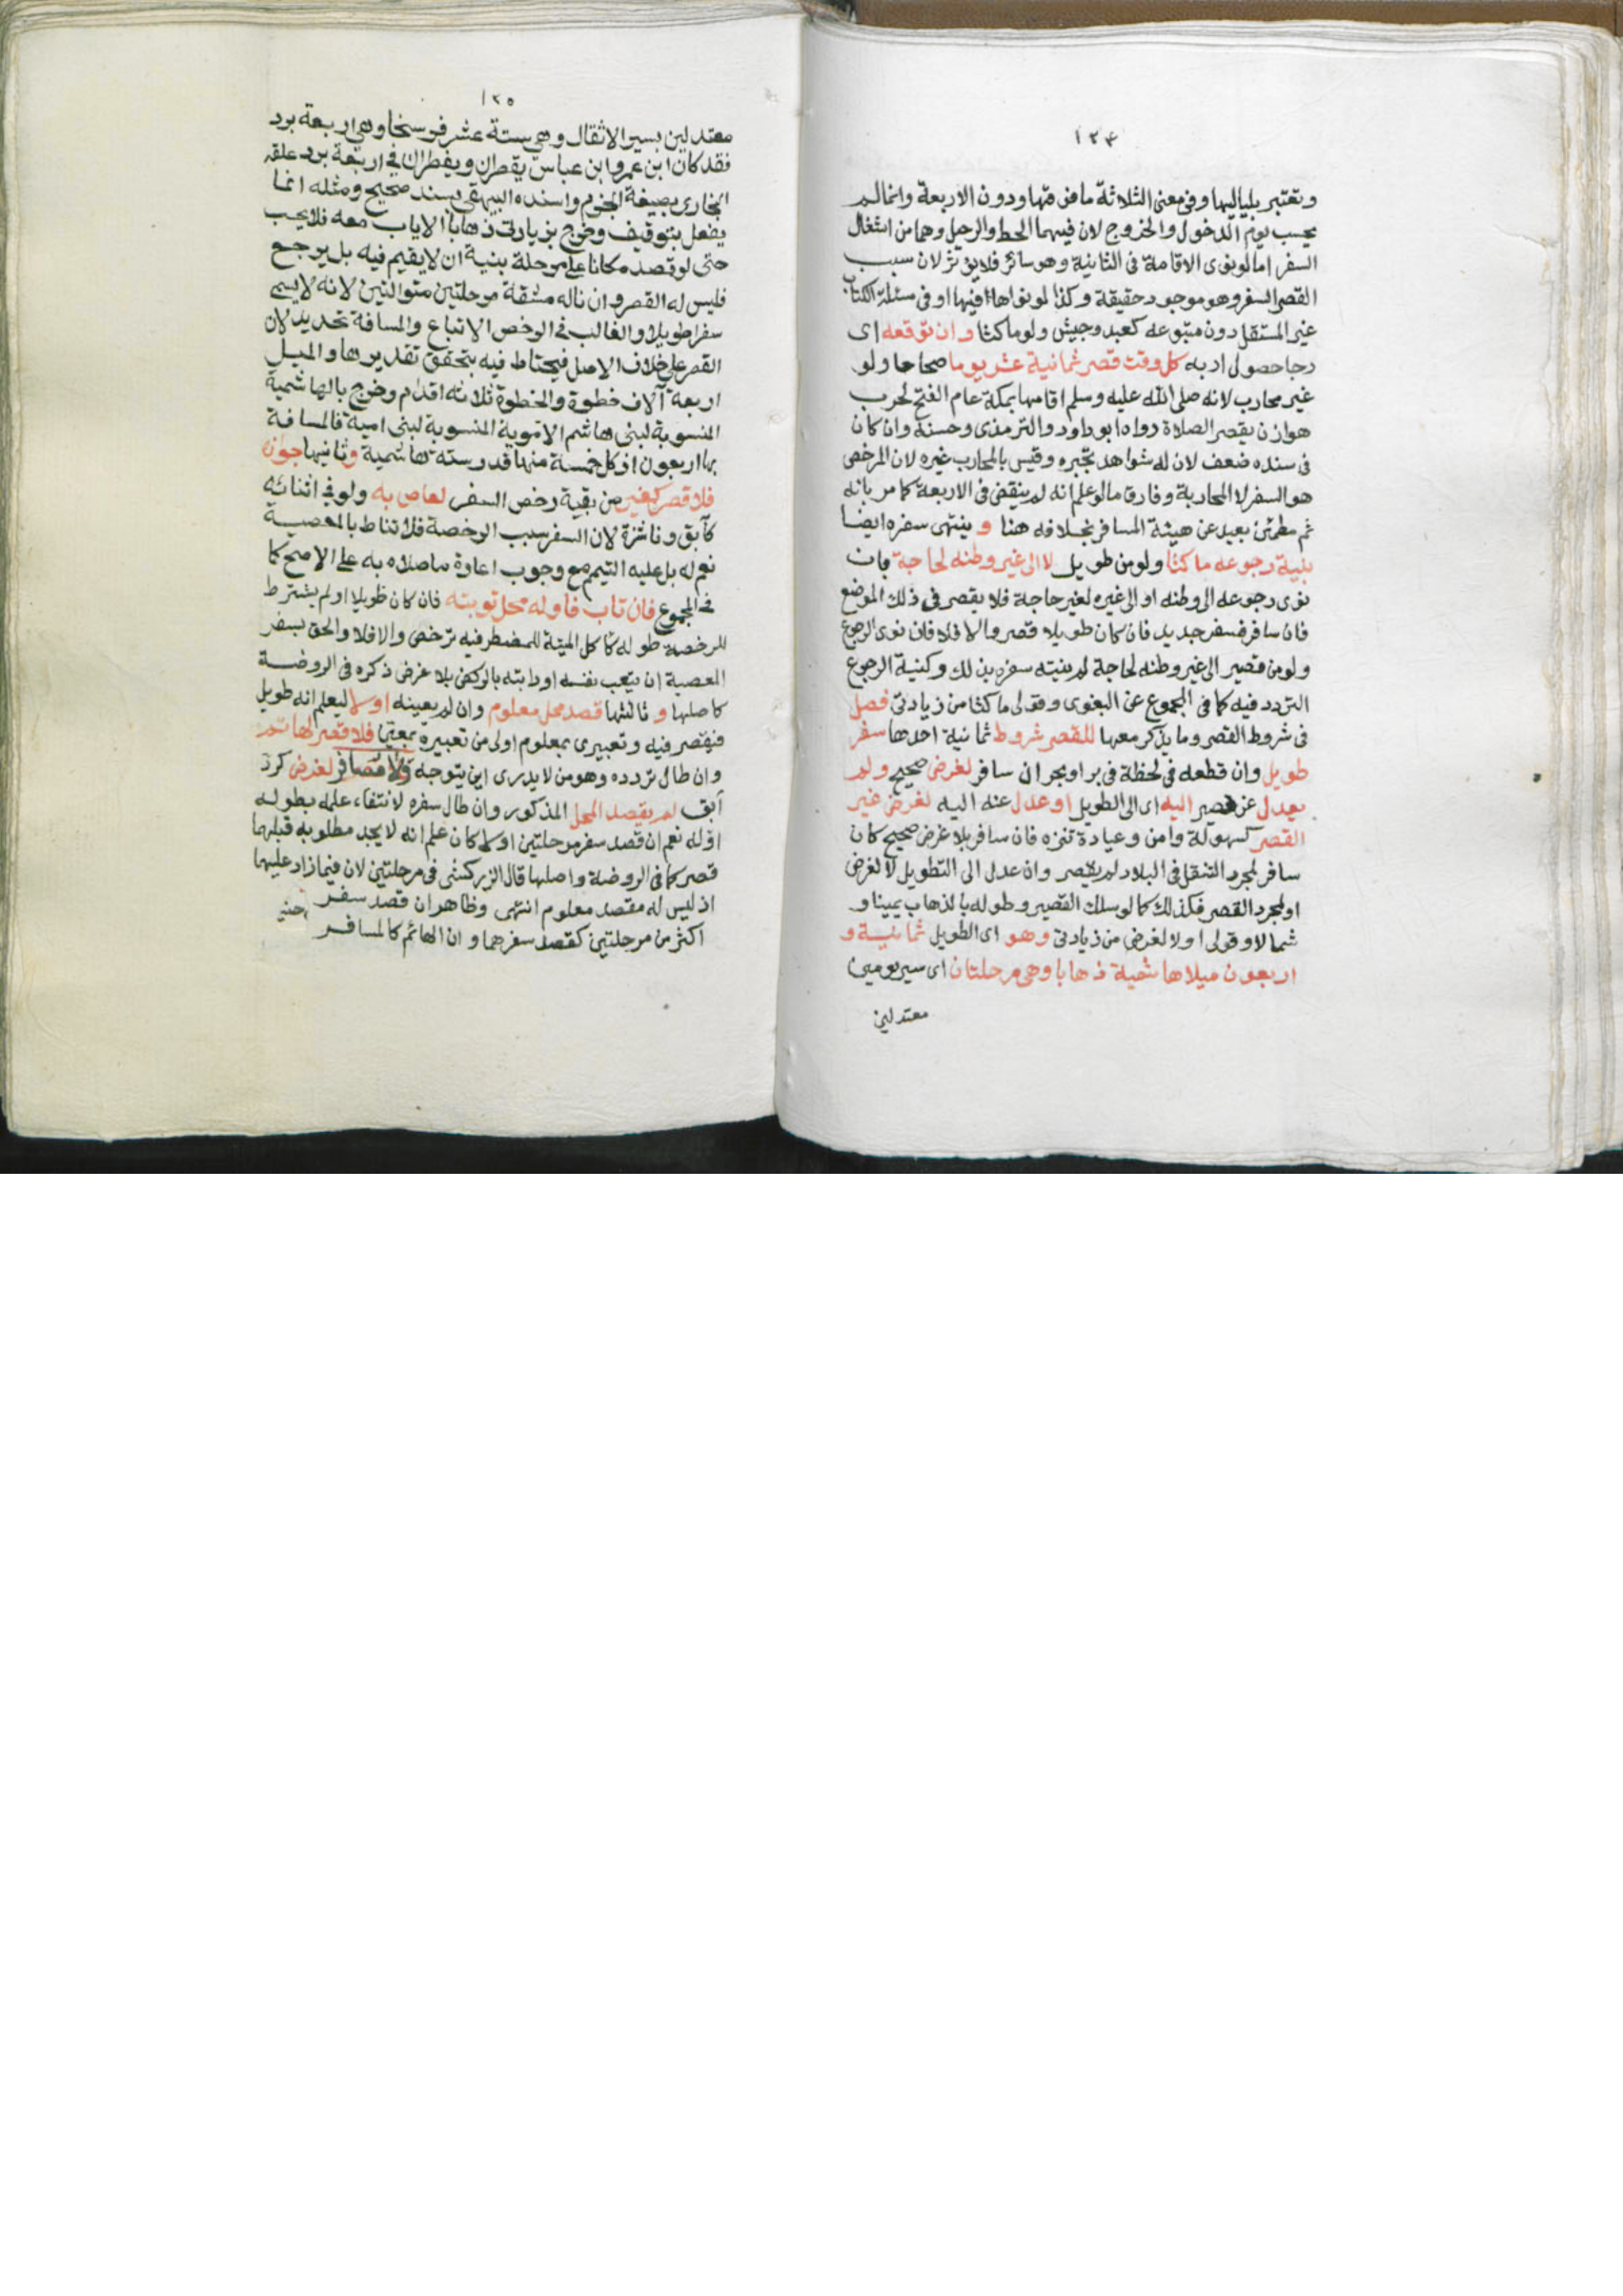 ١٢٤
وتعتبر بلياليها وفي معنى الثلاثة ما فوقها ودون الاربعة وانما لم
يحسب يوم الدخول والخروج لان فيهما الحط والرحيل وهما من اشغال
السفر اما لو نوى الاقامة في الثانية وهو سائر فلا يؤثر لان سبب
القصر السفر وهو موجود حقيقة وكذا لو نواها فيها او في مسئلة الكتاب
غير المستقل دون متبوعه كعبد وجيش ولو ماكثا وان توقعه اى
رجا حصول اربه كل وقت قصر ثمانية عشر يوما صحاحا ولو
غير محارب لانه صلى الله عليه وسلم اقامها بمكة عام الفتح لحرب
هوازن يقصر الصلاة رواه ابو داود والترمذى وحسنه وان كان
في سنده ضعف لان له شواهد تجبره وقيس بالمحارب غيره لان المرخص
هو السفر لا المحاربة وفارق ما لو علم انه لم ينقض في الاربعة كما مر بانه
ثم مطمئن بعيد عن هيئة المسافر بخلافه هنا و ينتهى سفره ايضا
بنية رجوعه ماكثا ولو من طويل لا الى غير وطنه لحاجة بان
نوى رجوعه الى وطنه او الى غيره لغير حاجة فلا يقصر في ذلك الموضع
فان سافر فسفر جديد فان كان طويلا قصر والا فلا فان نوى الرجوع
ولو من قصير الى غير وطنه لحاجة لم ينته سفره بذلك وكنية الرجوع
التردد فيه كما في المجموع عن البغوى وقولى ماكثا من زيادتى فصل
في شروط القصر وما يذكر معها للقصر شروط ثمانية احدها سفر
طويل وان قطعه في لحظة في بر او بحر ان سافر لغرض صحيح ولم
يعدل عن قصير اليه اى الى الطويل او عدل عنه اليه لغرض غير
القصر كسهولة وامن وعيادة وتنزه فان سافر بلا غرض صحيح كان
سافر لمجرد التنقل في البلاد لم يقصر وان عدل الى التطويل لا لغرض
او لمجرد القصر فكذلك كما لو سلك القصير وطوله بالذهاب يمينا و
شمالا وقولى اولا لغرض من زيادتى وهو اى الطويل ثمانية و
اربعون ميلا هاشمية ذهابا وهى مرحلتان اى سير يومين
معتدلين
١٢٥
معتدلين بسير الاثقال وهي ستة عشر فرسخا وهي اربعة برد
فقد كان ابن عمر وابن عباس يقصران ويفطران في اربعة برد علقه
البخارى بصيغة الجزم واسنده البيهقى بسند صحيح ومثله انما
يفعل بتوقيف وخرج بزيادتى ذهابا الاياب معه فلا يحسب
حتى لو قصد مكانا على مرحلة بنية ان لا يقيم فيه بل يرجع
فليس له القصر وان ناله مشقة مرحلتين متواليتين لانه لا يسمى
سفرا طويلا والغالب في الرخص الاتباع والمسافة تحديد لان
القصر على خلاف الاصل فيحتاط فيه بتحقق تقديرها والميل
اربعة آلاف خطوة والخطوة ثلاثة اقدام وخرج بالهاشمية
المنسوبة لبنى هاشم الاموية المنسوبة لبنى امية فالمسافة
بها اربعون اذ كل خمسة منها قدر ستة هاشمية وثانيها جوازه
فلا قصر كغيره من بقية رخص السفر لعاص به ولو في اثنائه
كآبق وناشزة لان السفر سبب الرخصة فلا تناط بالمعصية
نعم له بل عليه التيمم مع وجوب اعادة ما صلاه به على الاصح كما
في المجموع فان تاب فاوله محل توبته فان كان طويلا او لم يشترط
للرخصة طوله كاكل الميتة للمضطر فيه ترخص والا فلا والحق بسفر
المعصية ان يتعب نفسه او دابته بالركض بلا غرض ذكره في الروضة
كاصلها و ثالثها قصد محل معلوم وان لم يعينه اولا ليعلم انه طويل
فيقصر فيه وتعبيرى بمعلوم اولى من تعبيره بمعين فلا قصر لهائم
وان طال تردده وهو من لا يدرى اين يتوجه ولا مسافر لغرض كرد
آبق لم يقصد المحل المذكور وان طال سفره لانتفاء علمه بطوله
اوله نعم ان قصد سفر مرحلتين اولا كان علم انه لا يجد مطلوبه قبلهما
قصر كما في الروضة واصلها قال الزركشى في مرحلتين لان فيما زاد عليهما
اذ ليس له مقصد معلوم انتهى وظاهر ان قصد سفر
اكثر من مرحلتين كقصد سفرهما و ان الهائم كالمسافر